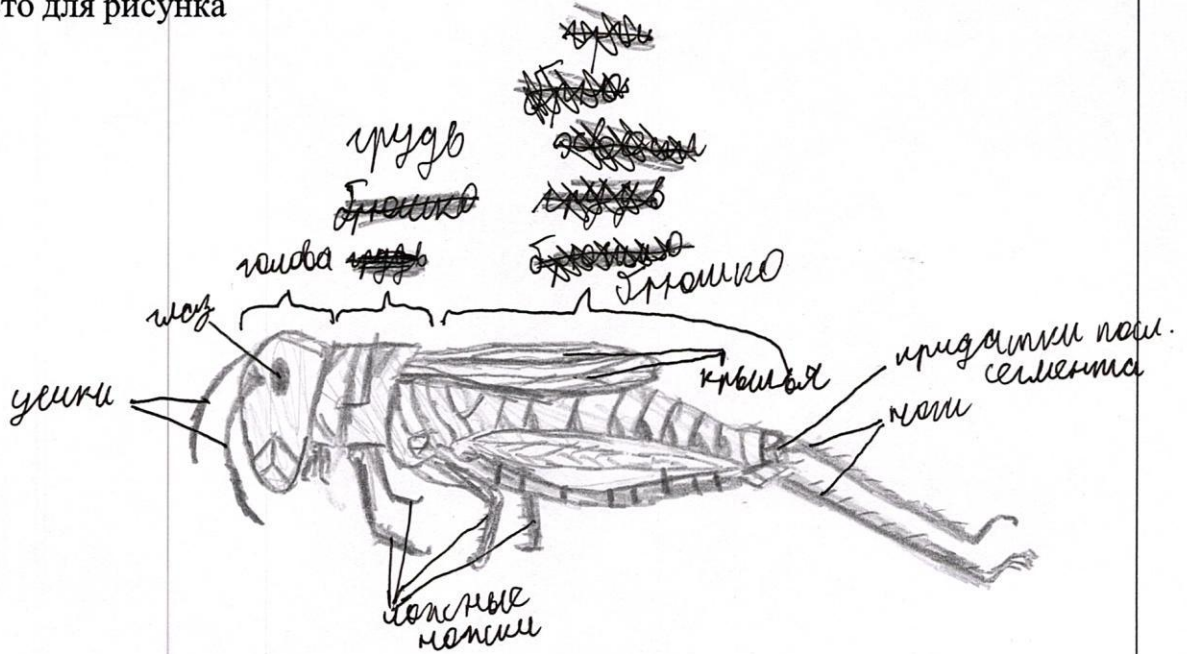 то для рисунка
грудь
брюшко
голова грудь
брюшко
глаз
усики
крылья
придатки посл.
сегмента
ноги
ложные
ножки